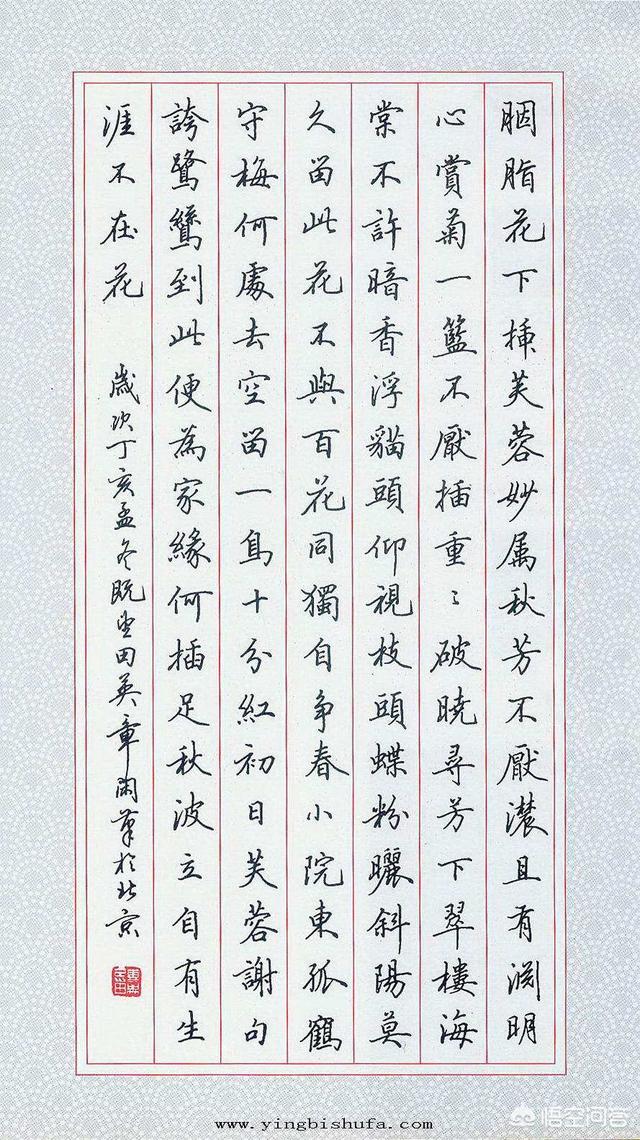 胭脂花下插芙蓉妙属秋芳不厭濃且有淵明
心賞菊一籃不厭插重〻破曉尋芳下翠樓海
棠不許暗香浮貓頭仰視枝頭蝶粉曬斜陽莫
久留此花不與百花同獨自争春小院東孤鶴
守梅何處去空留一島十分紅初日芙蓉謝句
誇鷺鷥到此便為家緣何插足秋波立自有生
涯不在花
歲次丁亥孟冬既望田英章閑筆於北京
www.yingbishufa.com
悟空问答